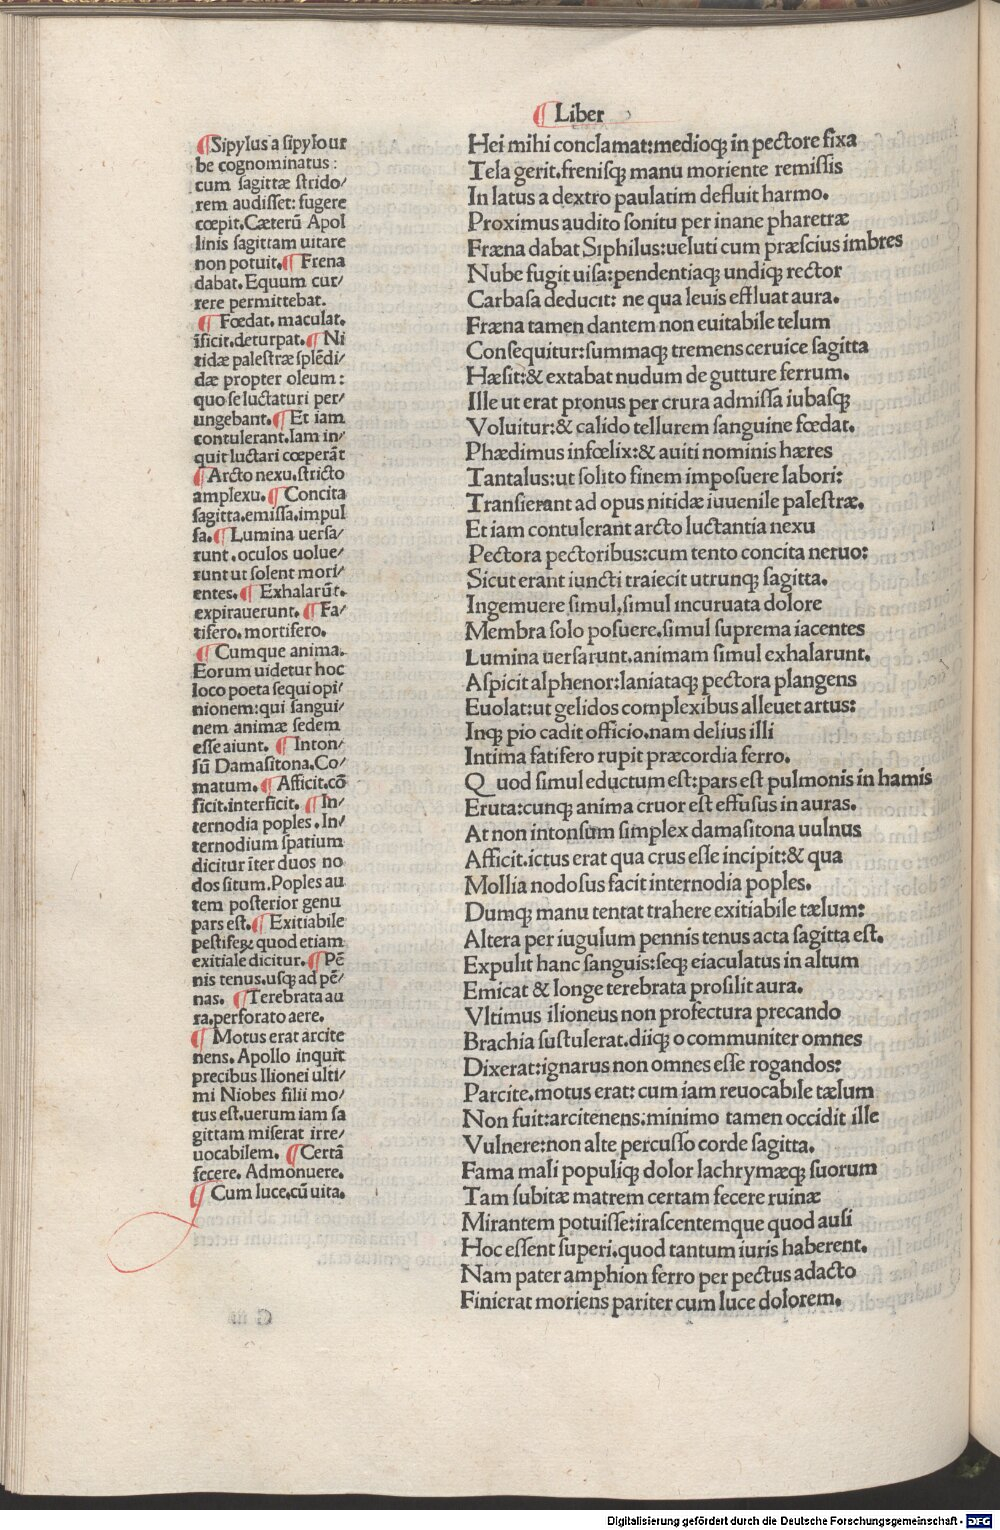 ¶ Liber
¶Sipylus a sipylo ur
be cognominatus:
cum sagittæ strido/
rem audisset: fugere
cœpit. Cæterū Apol
linis sagittam uitare
non potuit. ¶ Frena
dabat. Equum cur/
rere permittebat.
¶ Fœdat. maculat.
īficit. deturpat. ¶ Ni
tidæ palestræ splēdi/
dæ propter oleum:
quo se luctaturi per/
ungebant. ¶ Et iam
contulerant. Iam in/
quit luctari cœperāt
¶ Arcto nexu. stricto
amplexu. ¶ Concita
sagitta. emissa. impul
sa. ¶ Lumina uersa/
runt. oculos uolue/
runt ut solent mori/
entes. ¶ Exhalarūt.
expirauerunt. ¶ Fa/
tifero. mortifero.
¶ Cumque anima.
Eorum uidetur hoc
loco poeta sequi opi/
nionem: qui sangui/
nem animæ sedem
esse aiunt. ¶ Inton/
sū Damasitona. Co/
matum. ¶ Afficit. cō
ficit. interficit. ¶ In/
ternodia poples. In/
ternodium spatium
dicitur īter duos no
dos situm. Poples au
tem posterior genu
pars est. ¶ Exitiabile
pestiferꝝ quod etiam
exitiale dicitur. ¶ Pē
nis tenus. usqꝫ ad pē/
nas. ¶ Terebrata au
ra. perforato aere.
¶ Motus erat arcite
nens. Apollo inquit
precibus Ilionei ulti/
mi Niobes filii mo/
tus est. uerum iam sa
gittam miserat irre/
uocabilem. ¶ Certā
fecere. Admonuere.
¶ Cum luce. cū uita.
Hei mihi conclamat: medioqꝫ in pectore fixa
Tela gerit. frenisqꝫ manu moriente remissis
In latus a dextro paulatim defluit harmo.
Proximus audito sonitu per inane pharetræ
Fræna dabat Siphilus: ueluti cum præscius imbres
Nube fugit uisa: pendentiaqꝫ undiqꝫ rector
Carbasa deducit: ne qua leuis effluat aura.
Fræna tamen dantem non euitabile telum
Consequitur: summaqꝫ tremens ceruice sagitta
Hæsit: & extabat nudum de gutture ferrum.
Ille ut erat pronus per crura admissa iubasqꝫ
Voluitur: & calido tellurem sanguine fœdat.
Phædimus infœlix: & auiti nominis hæres
Tantalus: ut solito finem imposuere labori:
Transierant ad opus nitidæ iuuenile palestræ.
Et iam contulerant arcto luctantia nexu
Pectora pectoribus: cum tento concita neruo:
Sicut erant iuncti traiecit utrunqꝫ sagitta.
Ingemuere simul, simul incuruata dolore
Membra solo posuere. simul suprema iacentes
Lumina uersarunt. animam simul exhalarunt.
Aspicit alphenor: laniataqꝫ pectora plangens
Euolat: ut gelidos complexibus alleuet artus:
Inqꝫ pio cadit officio. nam delius illi
Intima fatifero rupit præcordia ferro.
Quod simul eductum est: pars est pulmonis in hamis
Eruta: cunqꝫ anima cruor est effusus in auras.
At non intonsum simplex damasitona uulnus
Afficit. ictus erat qua crus esse incipit: & qua
Mollia nodosus facit internodia poples.
Dumqꝫ manu tentat trahere exitiabile tælum:
Altera per iugulum pennis tenus acta sagitta est.
Expulit hanc sanguis: seqꝫ eiaculatus in altum
Emicat & longe terebrata prosilit aura.
Vltimus ilioneus non profectura precando
Brachia sustulerat. diiqꝫ o communiter omnes
Dixerat: ignarus non omnes esse rogandos:
Parcite. motus erat: cum iam reuocabile tælum
Non fuit: arcitenens: minimo tamen occidit ille
Vulnere: non alte percusso corde sagitta.
Fama mali populiqꝫ dolor lachrymæqꝫ suorum
Tam subitæ matrem certam fecere ruinæ
Mirantem potuisse: irascentemque quod ausi
Hoc essent superi. quod tantum iuris haberent.
Nam pater amphion ferro per pectus adacto
Finierat moriens pariter cum luce dolorem.
Digitalisierung gefördert durch die Deutsche Forschungsgemeinschaft - DFG